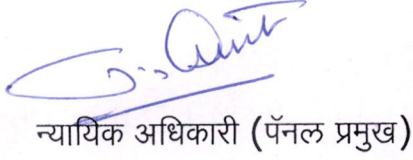 न्यायिक अधिकारी (पॅनल प्रमुख)